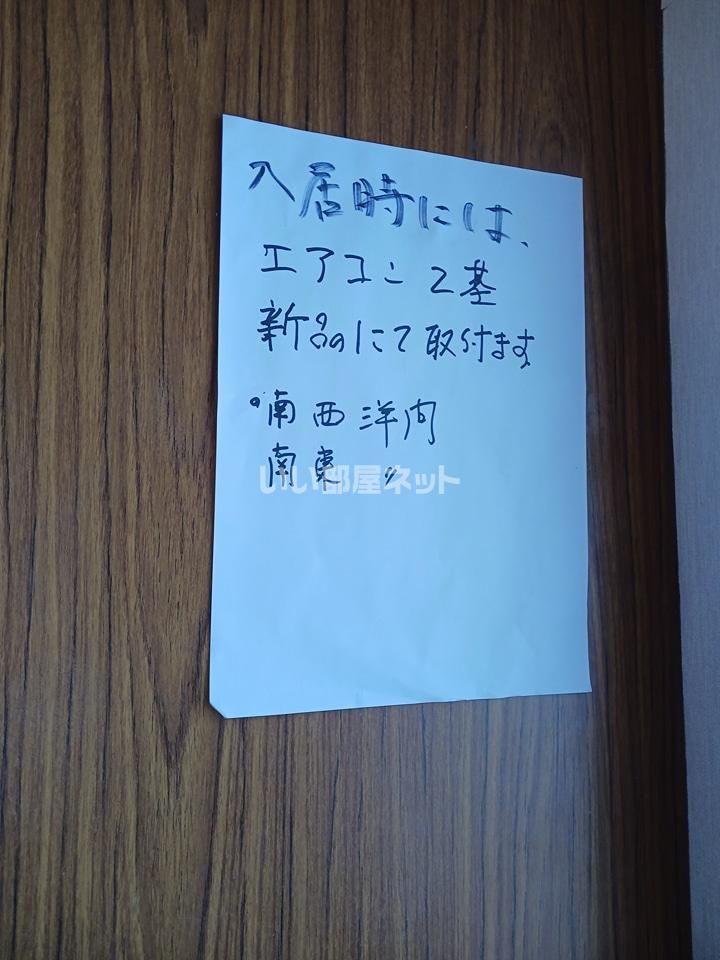 入居時には、
エアコン 2基
新品のにて取付ます。
・南西洋内
南東 〃
いい部屋ネット